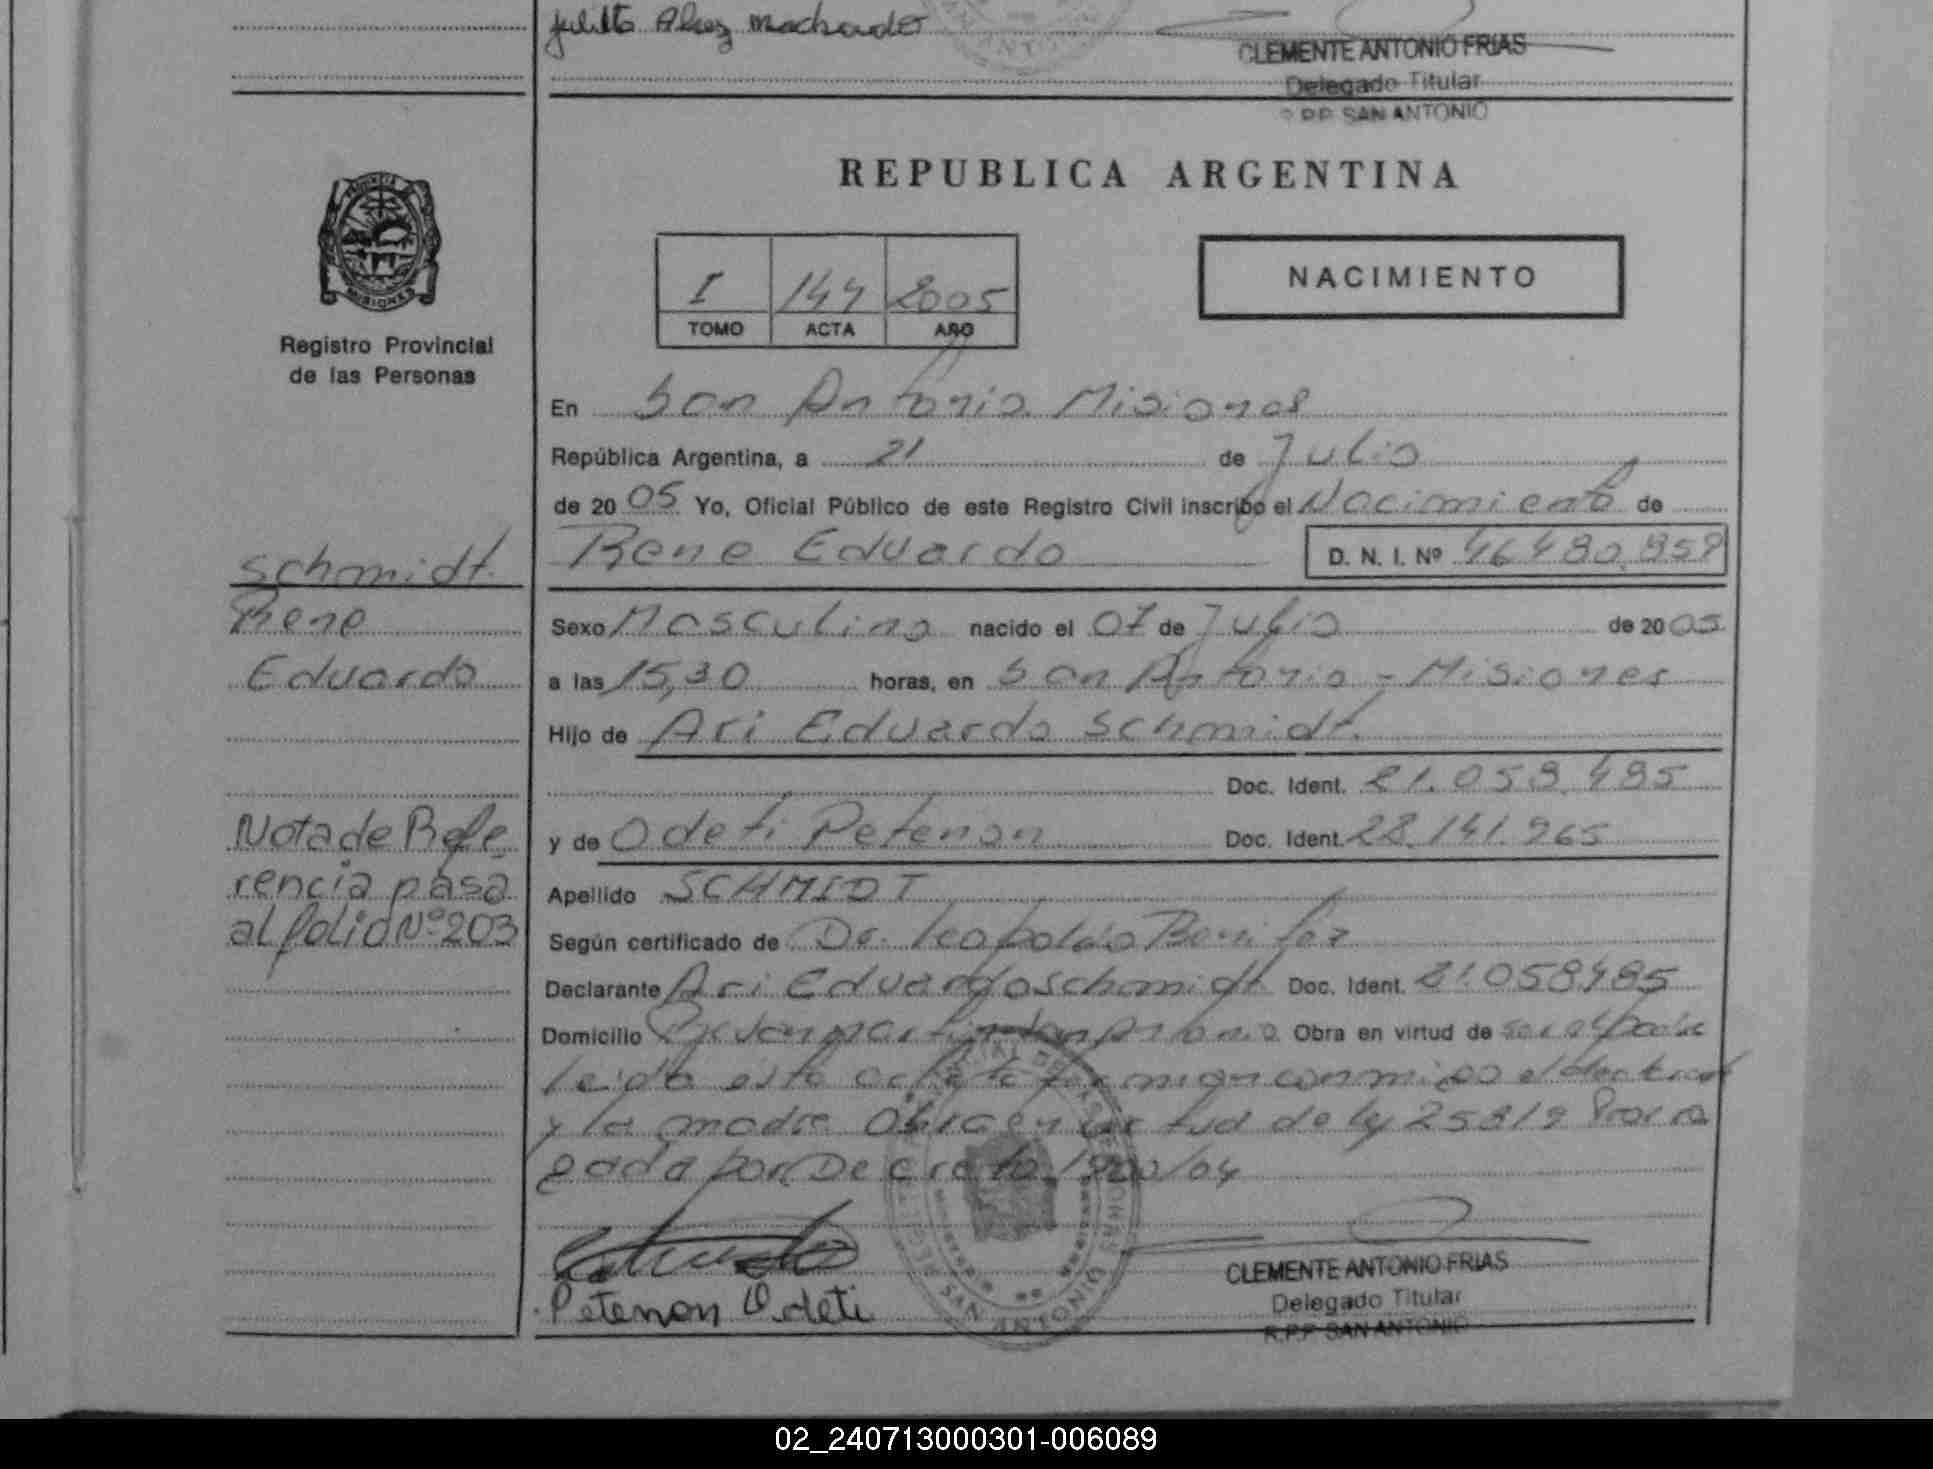 Julitta Alvez Machado
CLEMENTE ANTONIO FRIAS
Delegado Titular
R.P.P. SAN ANTONIO
REPUBLICA ARGENTINA
I 144 2005
TOMO ACTA AÑO
NACIMIENTO
PROVINCIA DE
MISIONES
Registro Provincial
de las Personas
En San Antonio Misiones
República Argentina, a 21 de Julio
de 20 05 Yo, Oficial Público de este Registro Civil inscribo el Nacimiento de
Rene Eduardo D. N. I. Nº 46.480.859
Schmidt.
Rene
Eduardo
Sexo Masculino nacido el 07 de Julio de 20 05
a las 15,30 horas, en San Antonio - Misiones
Hijo de Ari Eduardo Schmidt.
Doc. Ident. 21.058.485
y de Odeti Petenon Doc. Ident. 28.141.965
Nota de Refe
rencia pasa
al folio Nº 203
Apellido SCHMIDT
Según certificado de Dr. Leopoldo Benitez
Declarante Ari Eduardo Schmidt Doc. Ident. 21.058485
Domicilio San Antonio Obra en virtud de ser el padre
leida esta acta la firman conmigo el declarante
y la madre Obra en virtud de ley 25819 Prorro
gada por Decreto 1900/04
Petenon Odeti
SAN ANTONIO
CLEMENTE ANTONIO FRIAS
Delegado Titular
R.P.P. SAN ANTONIO
02_240713000301-006089